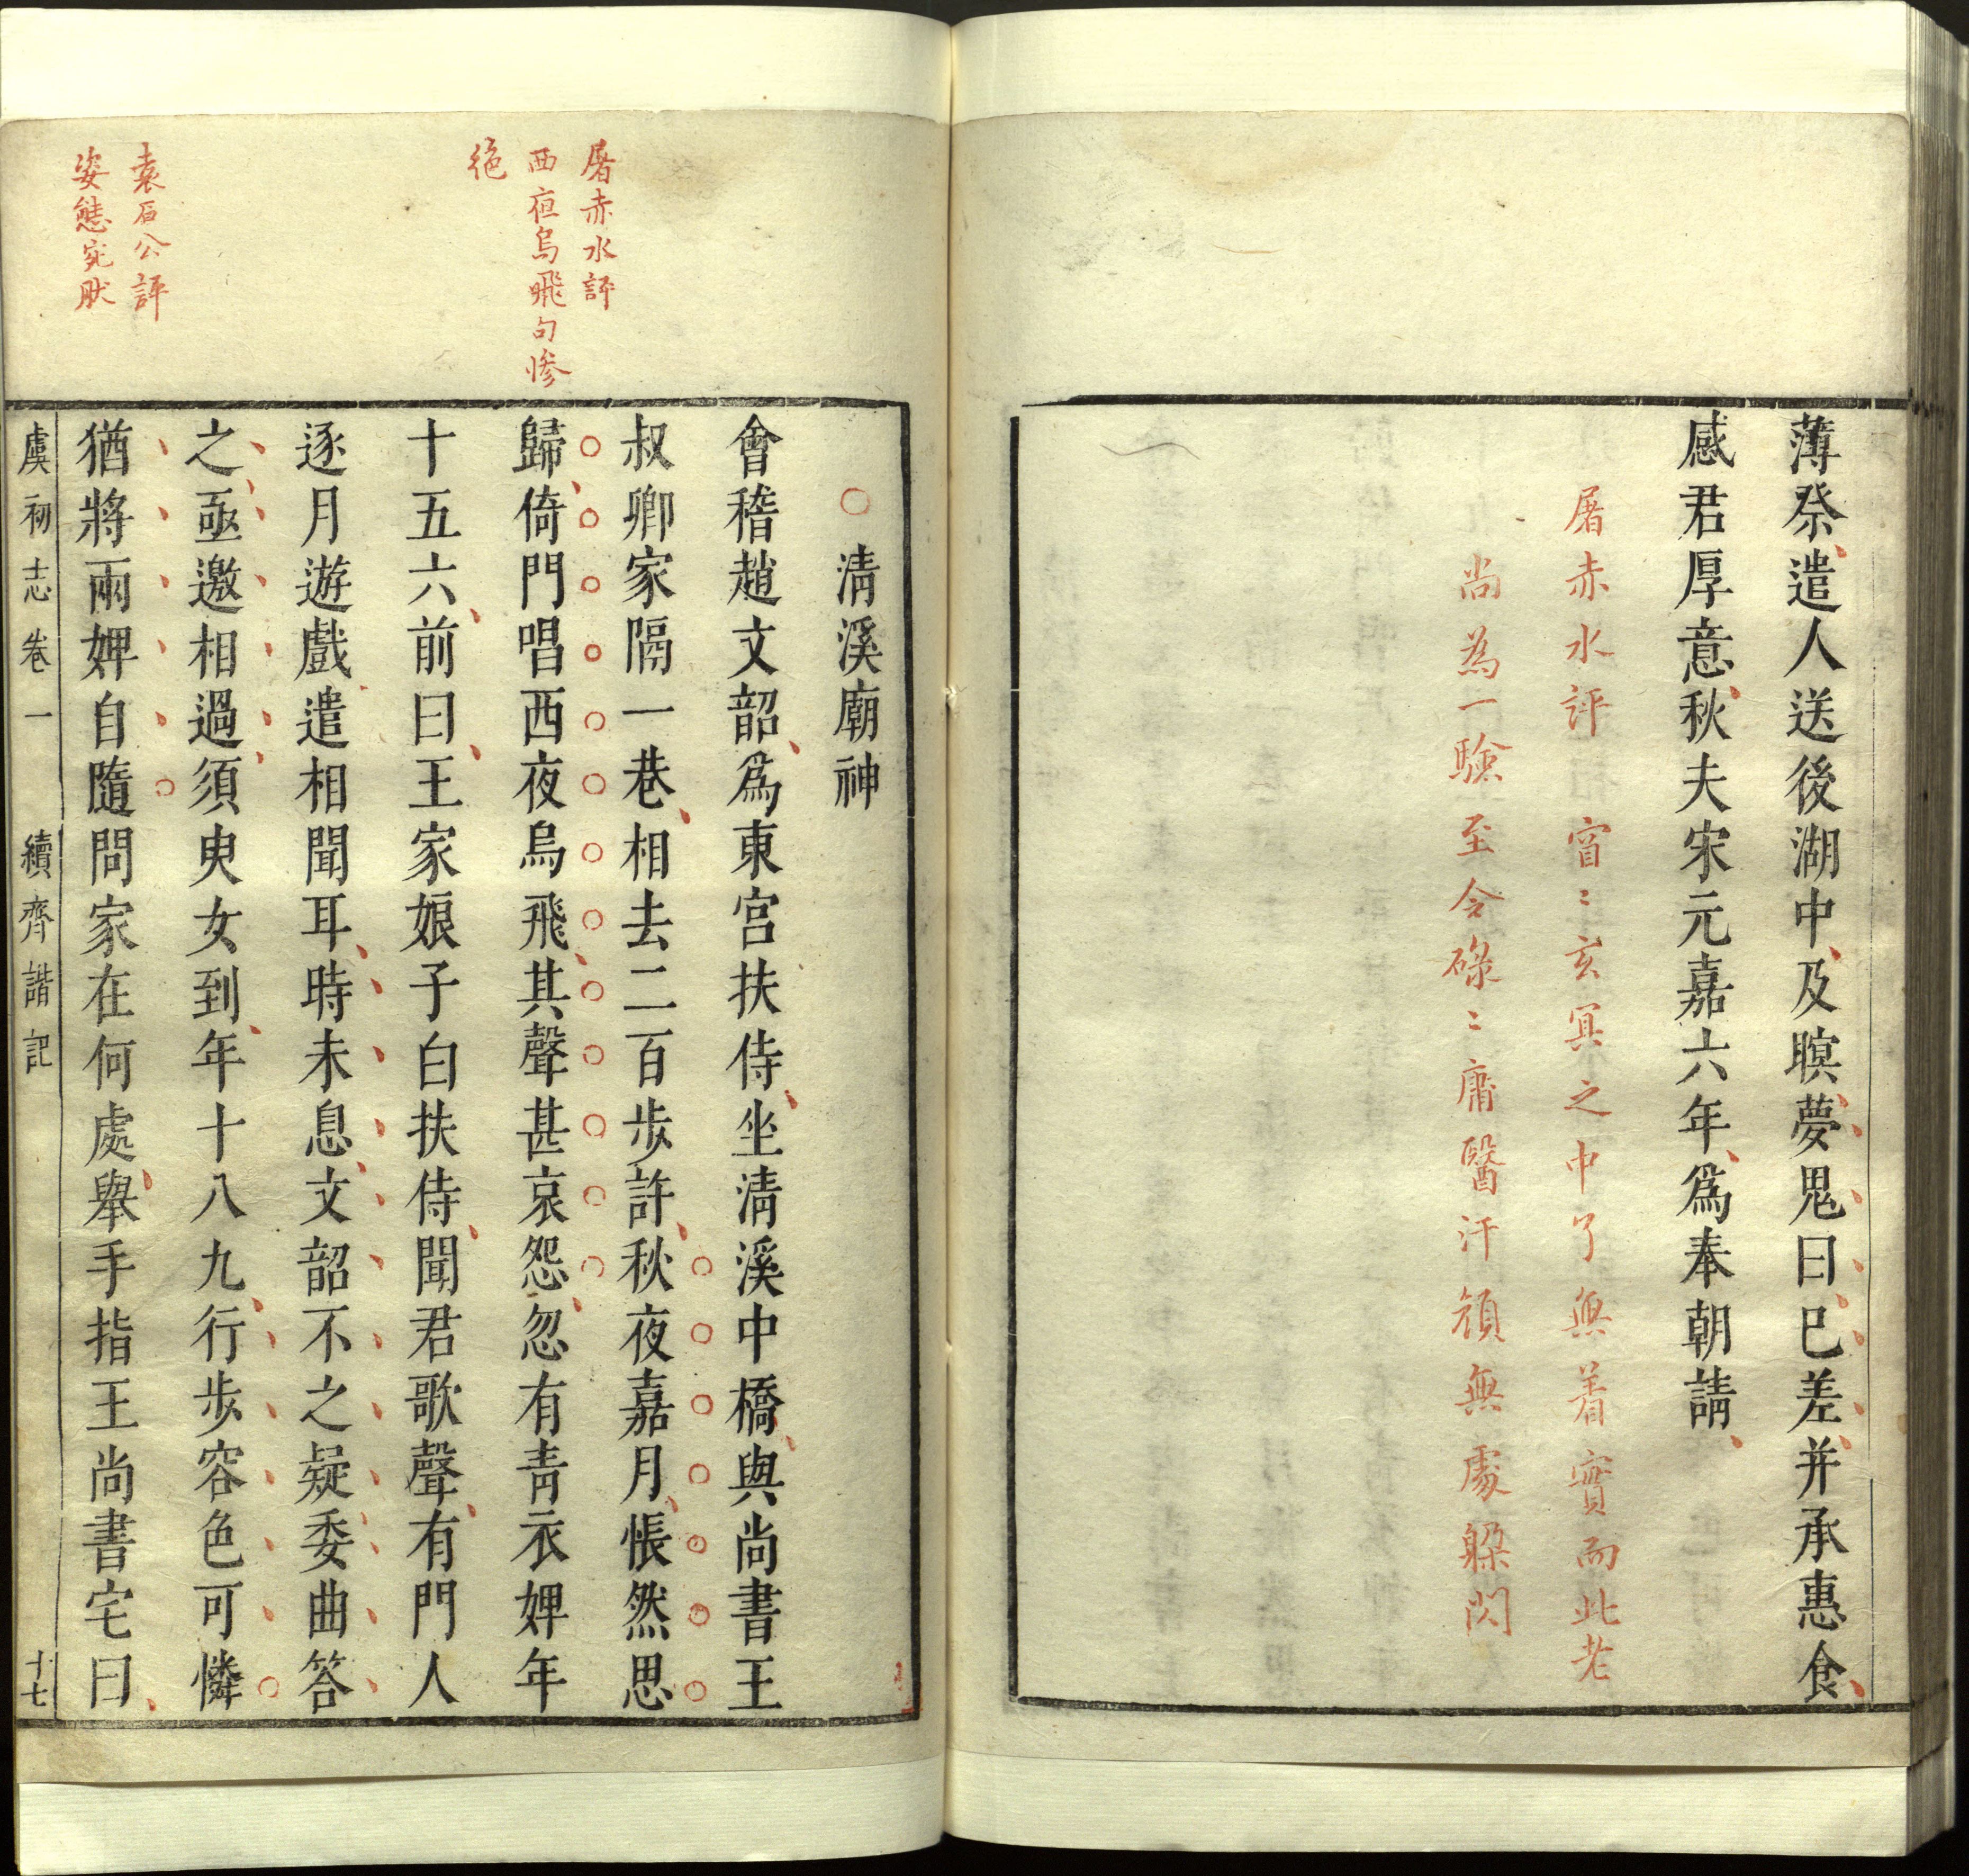 薄祭遣人送後湖中及暝夢鬼曰已差并承惠食
感君厚意秋夫宋元嘉六年爲奉朝請
屠赤水評 窅〻玄冥之中了無着實而此老
尚為一驗至令碌〻庸醫汗顏無處躲閃
屠赤水評
西夜烏飛句慘
絶
袁石公評
姿態宛肰
○清溪廟神
會稽趙文韶爲東宮扶侍坐清溪中橋與尚書王
叔卿家隔一巷相去二百步許秋夜嘉月悵然思
歸倚門唱西夜烏飛其聲甚哀怨忽有青衣婢年
十五六前曰王家娘子白扶侍聞君歌聲有門人
逐月遊戲遣相聞耳時未息文韶不之疑委曲答
之亟邀相過須臾女到年十八九行步容色可憐
猶將兩婢自隨問家在何處舉手指王尚書宅曰
虞初志卷一 續齊諧記 十七